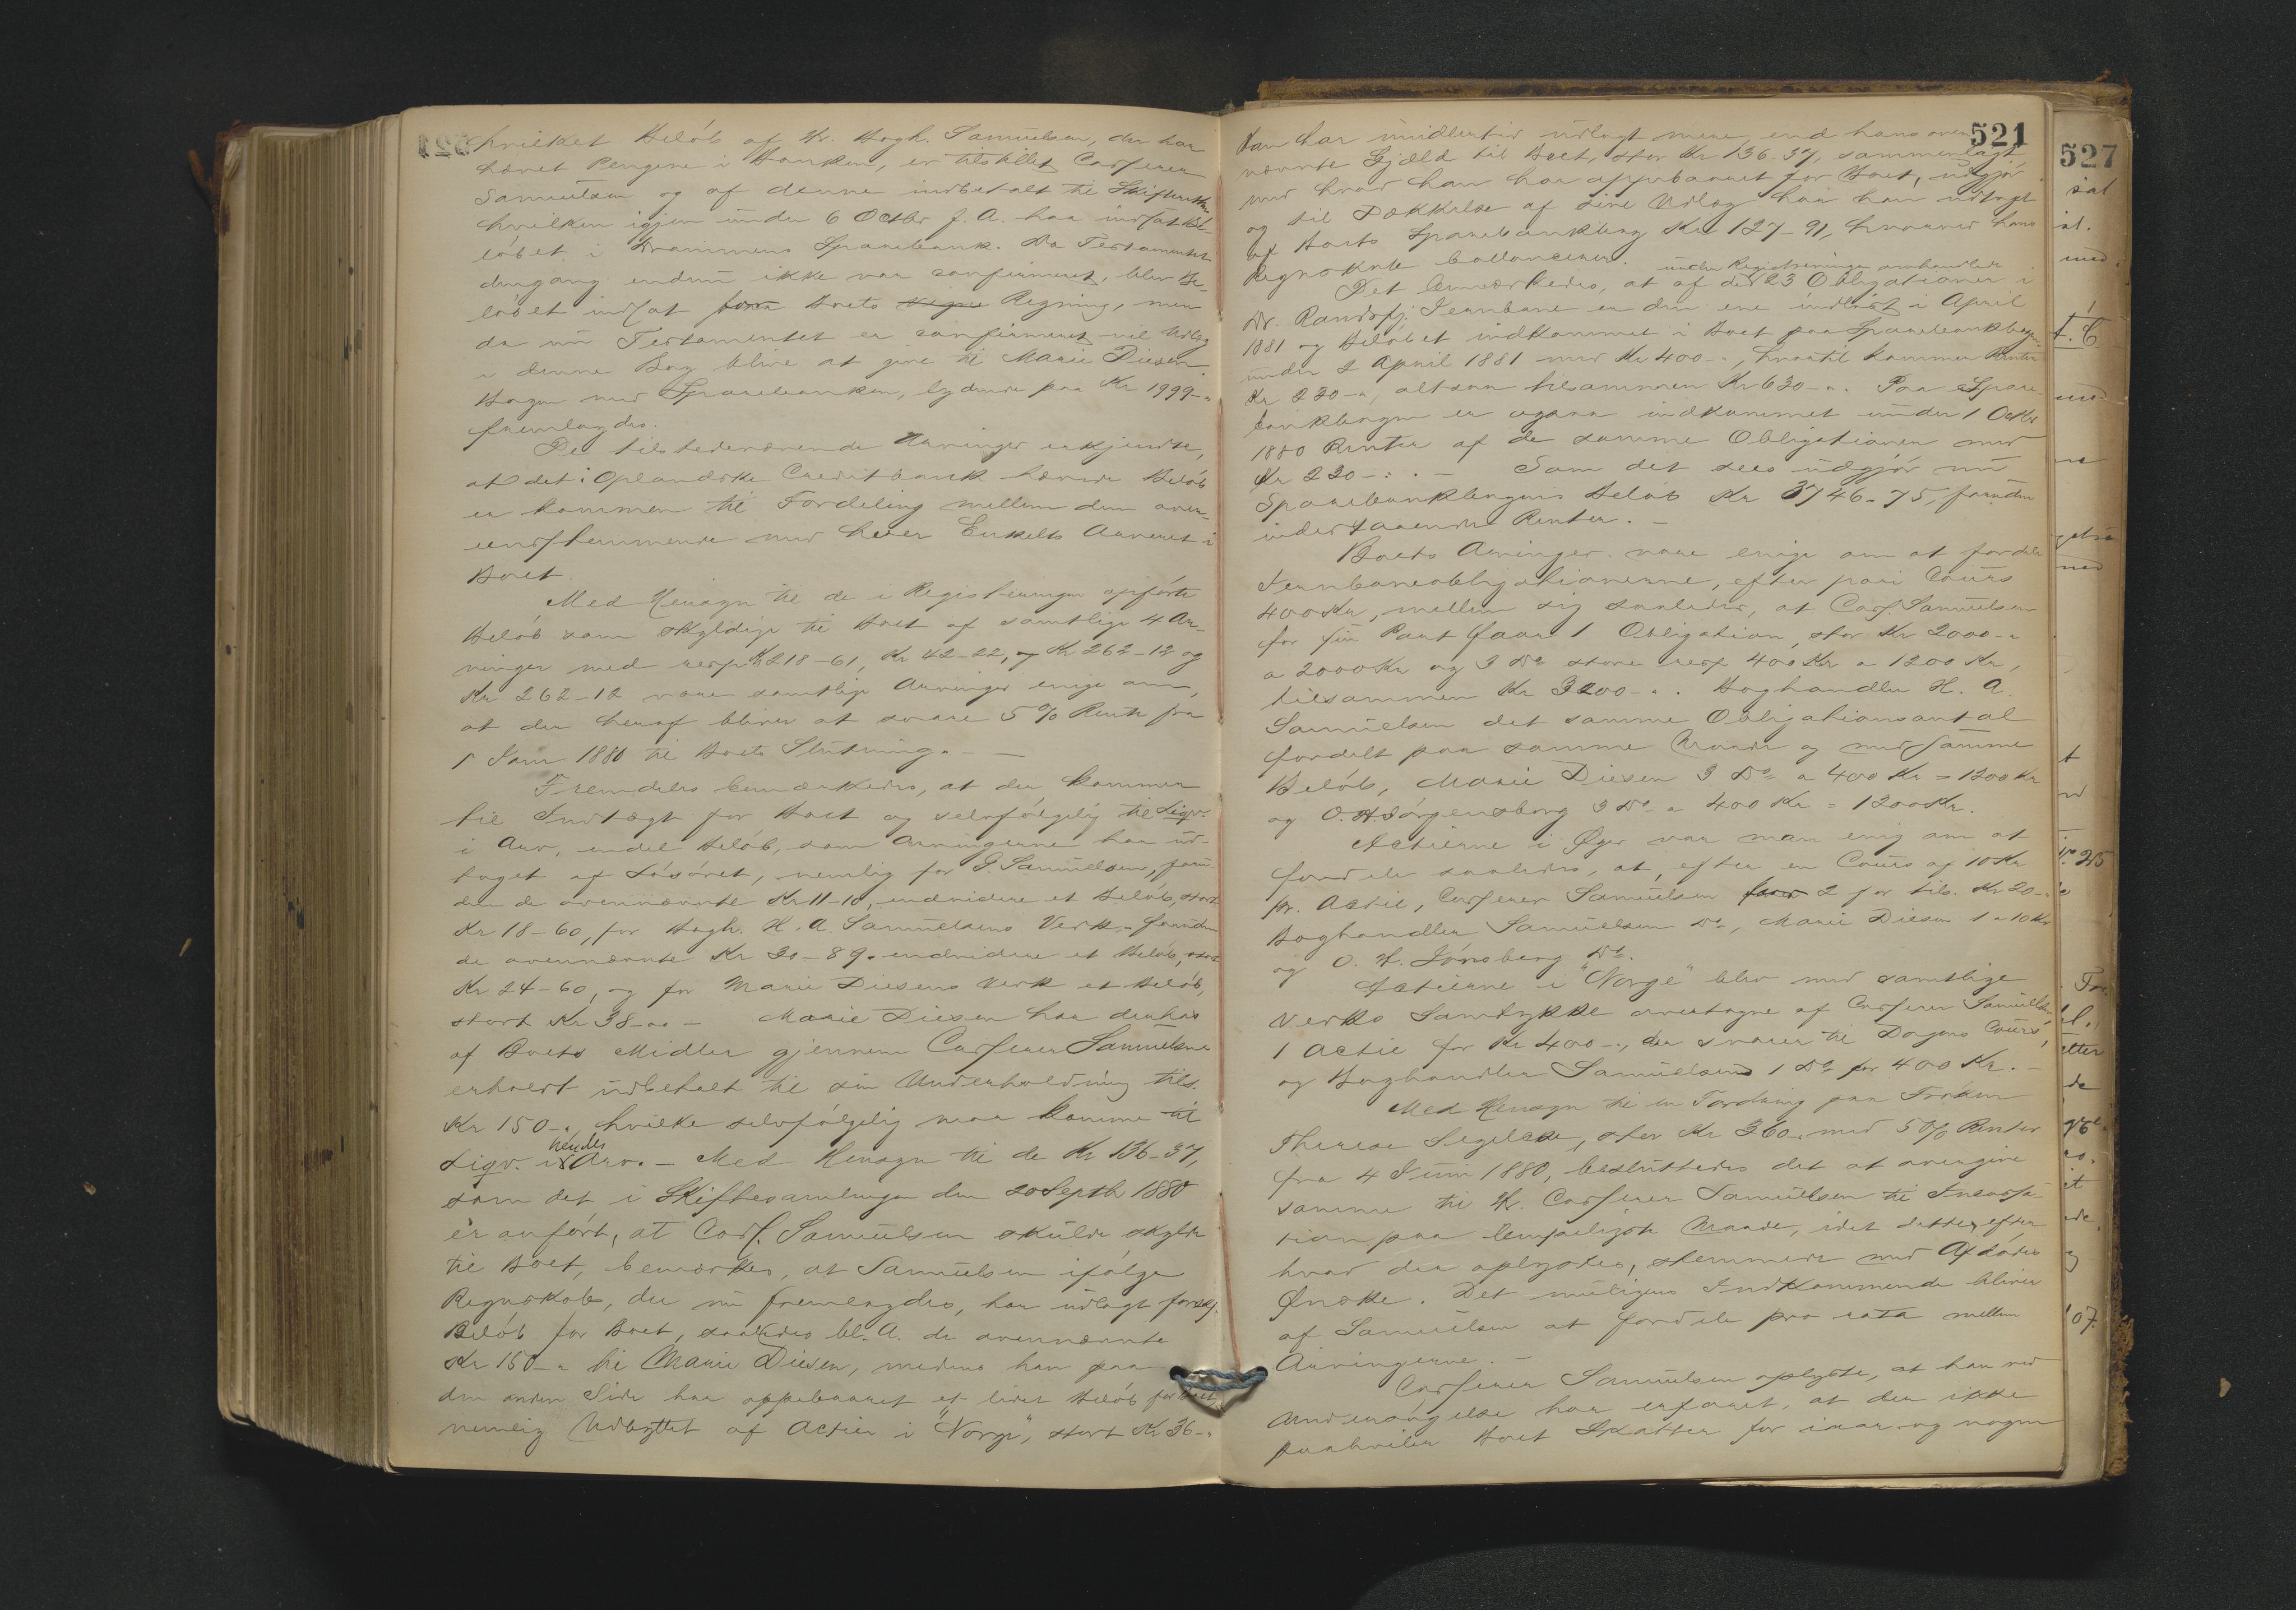 hvilket Beløb af Hr. Bogh. Samuelsen, der har
hævet Pengene i Banken, er tilstillet Carferer
Samuelsen og af denne indbetalt til Skifteretten
hvilken igjen under 6 Octbr f. A. har indsat Be-
løbet i Drammens Sparebank. Da Testamentet
dengang endnu ikke var confirmeret, blev Be-
løbet indsat for Boets Regning, men
da nu Testamentet er confirmeret vil Udlæg
i denne Bog blive at give til Marie Diesen.
Bogen med Sparebanken, lydende paa Kr 1999-"
fremlagdes.
De tilstedeværende Arvinger erkjendte,
at det i Oplandske Creditbank hævede Beløb
er kommen til Fordeling mellem dem over-
eensstemmende med hver Enkelts Arveret i
Boet.
Med Hensyn til de i Registeringen opførte
Beløb som skyldige til Boet af samtlige 4 Ar-
vinger med resp Kr 218-61, Kr 42-22, og Kr 262-12 og
Kr 262-12 vare samtlige Arvinger enige om,
at der heraf bliver at svare 5% Rente fra
1 Janr 1880 til Boets Slutning. -
Fremdeles bemærkedes, at der kommer
til Indtægt for Boet og selvfølgelig til Liqv.
i Arv, endel Beløb, som Arvingerne har ud-
taget af Løsøret, nemlig for J. Samuelsen, foru-
den de ovennævnte Kr 11-10, endvidere et Beløb, stort
Kr 18-60, for Bogh. H. A. Samuelsens Verk. - foruden
de ovennævnte Kr 20-89. endvidere et Beløb, stort
Kr 24-60, og for Marie Diesens Verk et Beløb,
stort Kr 38-"" - Marie Diesen har derhos
af Boets Midler gjennem Carferer Samuelsen
erholdt udbetalt til sin Underholdning tils.
Kr 150-", hvilke selvfølgelig maa komme til
Liqv. i hendes Arv. - Med Hensyn til de Kr 136-37,
som det i Skiftesamlingen den 20 Septbr 1880
er anført, at Carf. Samuelsen skulde skylde
til Boet, bemærkes, at Samuelsen ifølge
Regnskab, der nu fremlagdes, har udlagt forskj.
Beløb for Boet, saaledes bl. A. de ovennævnte
Kr 150-" til Marie Diesen, medens han paa
den anden Side har oppebaaret et lidet Beløb for Boet,
nemlig Udbyttet af Actier i "Norge", stort Kr 36-"
521
Han har imidlertid udlagt mere end hans oven-
nævnte Gjæld til Boet, stor Kr 136.37, sammenlagt
med hvad han har oppebaaret for Boet, udgjør
og til Dækkelse af sine Udlæg har han udtaget
af Boets Sparebankbog Kr 127-91, hvorved hans
Regnskab ballancerer.
under Registreringen omhandlede
Det bemærkedes, at af de 23 Obligationer i
Dr. Randsfj. Jernbane er den ene indløst i April
1881 og Beløbet indkommet i Boet paa Sparebankbogen
under 2 April 1881 med Kr 400-", hvortil kommer Renter
Kr 230-", altsaa tilsammen Kr 630-". Paa Spare-
bankbogen er ogsaa indkommet under 1 Octbr
1880 Renter af de samme Obligationer med
Kr 230-". - Som det sees udgjør nu
Sparebankbogens Beløb Kr 3746-75, foruden
indestaaende Renter. -
Boets Arvinger vare enige om at fordele
Jernbaneobligationerne, efter pari Cours
400 Kr, mellem sig saaledes, at Carf. Samuelsen
for sin Part faar 1 Obligation, stor Kr 2000-"
a 2000 Kr og 3 Do store resp 400 Kr a 1200 Kr,
tilsammen Kr 3200-". Boghandler H. A.
Samuelsen det samme Obligationsantal
fordelt paa samme Maade og med samme
Beløb, Marie Diesen 3 Do a 400 Kr = 1200 Kr
og O. H. Jørgensborg 3 Do a 400 Kr = 1200 Kr.
Actierne i Øger var man enig om at
fordele saaledes, at, efter en Cours af 10 Kr
pr. Actie, Carferer Samuelsen faar 2 for tils. Kr 20-"
Boghandler Samuelsen Do, Marie Diesen 1 a 10 Kr
og O. H. Jønsberg Do.
Actierne i "Norge" blev med samtlige
Verks Samtykke overtagne af Carferer Samuelsen,
1 Actie for Kr 400-", der svarer til Dagens Cours,
og Boghandler Samuelsen 1 Do for 400 Kr. -
Med Hensyn til en Fordring paa Frøken
Therese Segelcke, stor Kr 360-" med 5% Renter
fra 4 Juni 1880, besluttedes det at overgive
samme til Hr. Carferer Samuelsen til Incassa-
tion paa lempeligste Maade, idet dette, efter
hvad der oplystes, stemmede med Afdødes
Ønske. Det muligens Indkommende bliver
af Samuelsen at fordele pro rata mellem
Arvingerne. -
Carferer Samuelsen oplyste, at han ved
Undersøgelse har erfaret, at der ikke
paahviler Boet Skatter for iaar og nogen
527